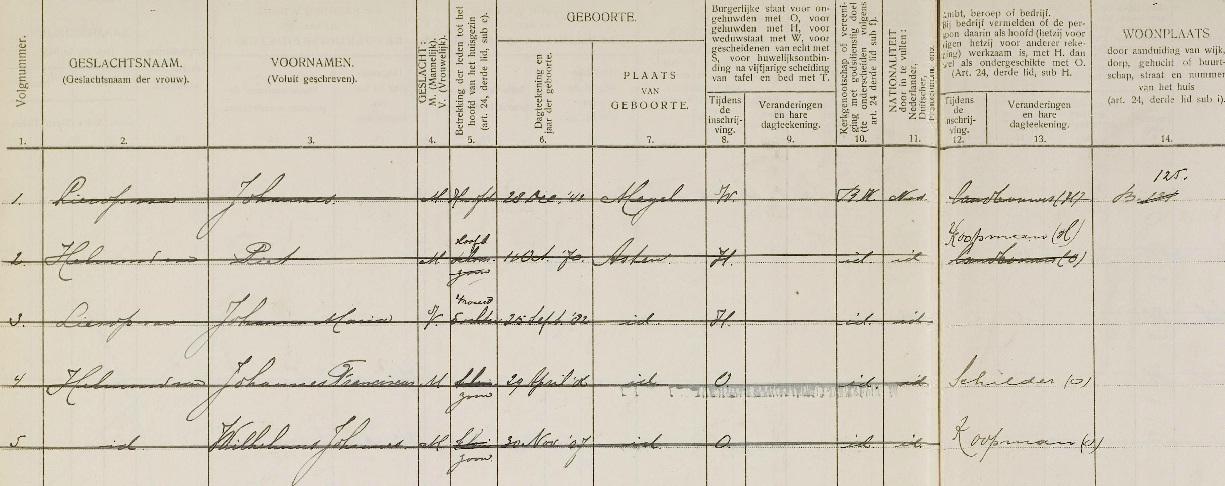 Volgnummer.
GESLACHTSNAAM.
(Geslachtsnaam der vrouw).
VOORNAMEN.
(Voluit geschreven).
GESLACHT:
M. (Mannelijk).
V. (Vrouwelijk).
Betrekking der leden tot het
hoofd van het huisgezin
(art. 24, derde lid, sub c).
GEBOORTE.
Dagteekening en
jaar der geboorte.
PLAATS
VAN
GEBOORTE.
Burgerlijke staat voor on-
gehuwden met O, voor
gehuwden met H, voor
weduwstaat met W, voor
gescheidenen van echt met
S, voor huwelijksontbin-
ding na vijfjarige scheiding
van tafel en bed met T.
Tijdens
de
inschrij-
ving.
Veranderingen
en hare
dagteekening.
Kerkgenootschap of vereeni-
ging met godsdienstig doel
(te onderscheiden volgens
art. 24 derde lid sub f).
NATIONALITEIT
door in te vullen:
Nederlander,
Duitscher,
enz.
Ambt, beroep of bedrijf.
Bij bedrijf vermelden of de per-
soon daarin als hoofd (hetzij voor
eigen hetzij voor anderer reke-
ning) werkzaam is, met H. dan
wel als ondergeschikte met O.
(Art. 24, derde lid, sub H.
Tijdens
de
inschrij-
ving.
Veranderingen
en hare
dagteekening.
WOONPLAATS
door aanduiding van wijk,
dorp, gehucht of buurt-
schap, straat en nummer
van het huis
(art. 24, derde lid sub i).
1. 2. 3. 4. 5. 6. 7. 8. 9. 10. 11. 12. 13. 14.
125.
1. Lierop van Johannes. M Hoofd 28 Dec. Meyel W. R.K. Ned. landbouwer (H) B
Hoofd Koopman (H)
2. Helmond van Piet M Oct. '70 Asten H. id. id landbouwer (O)
zoon
3. Lierop van Johanna Maria V. 25 Sept. '82 id H id. id
4 Helmond van Johannes Franciscus M 29 April id O id. id Schilder (O)
zoon
5 id Wilhelmus Johannes M 30 Nov '07 id O id id. Koopman (O)
zoon